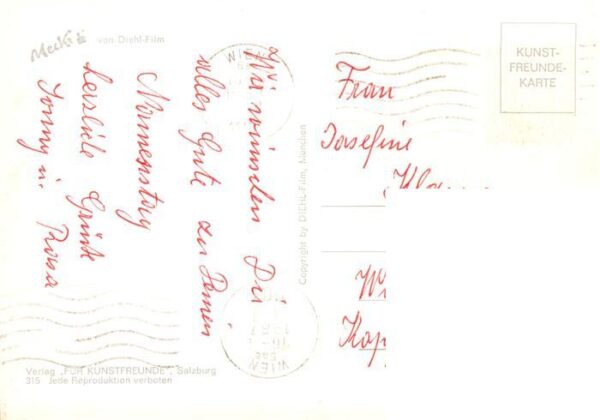 Mecki
von Diehl-Film
Wir wünschen Dir
alles Gute zu Deinem
Namenstag
herzliche Grüße
Rosa
Copyright by DIEHL-Film, München
WIEN
WIEN
KUNST-
FREUNDE-
KARTE
Frau
Josefine
Verlag „FÜR KUNSTFREUNDE", Salzburg
315 Jede Reproduktion verboten